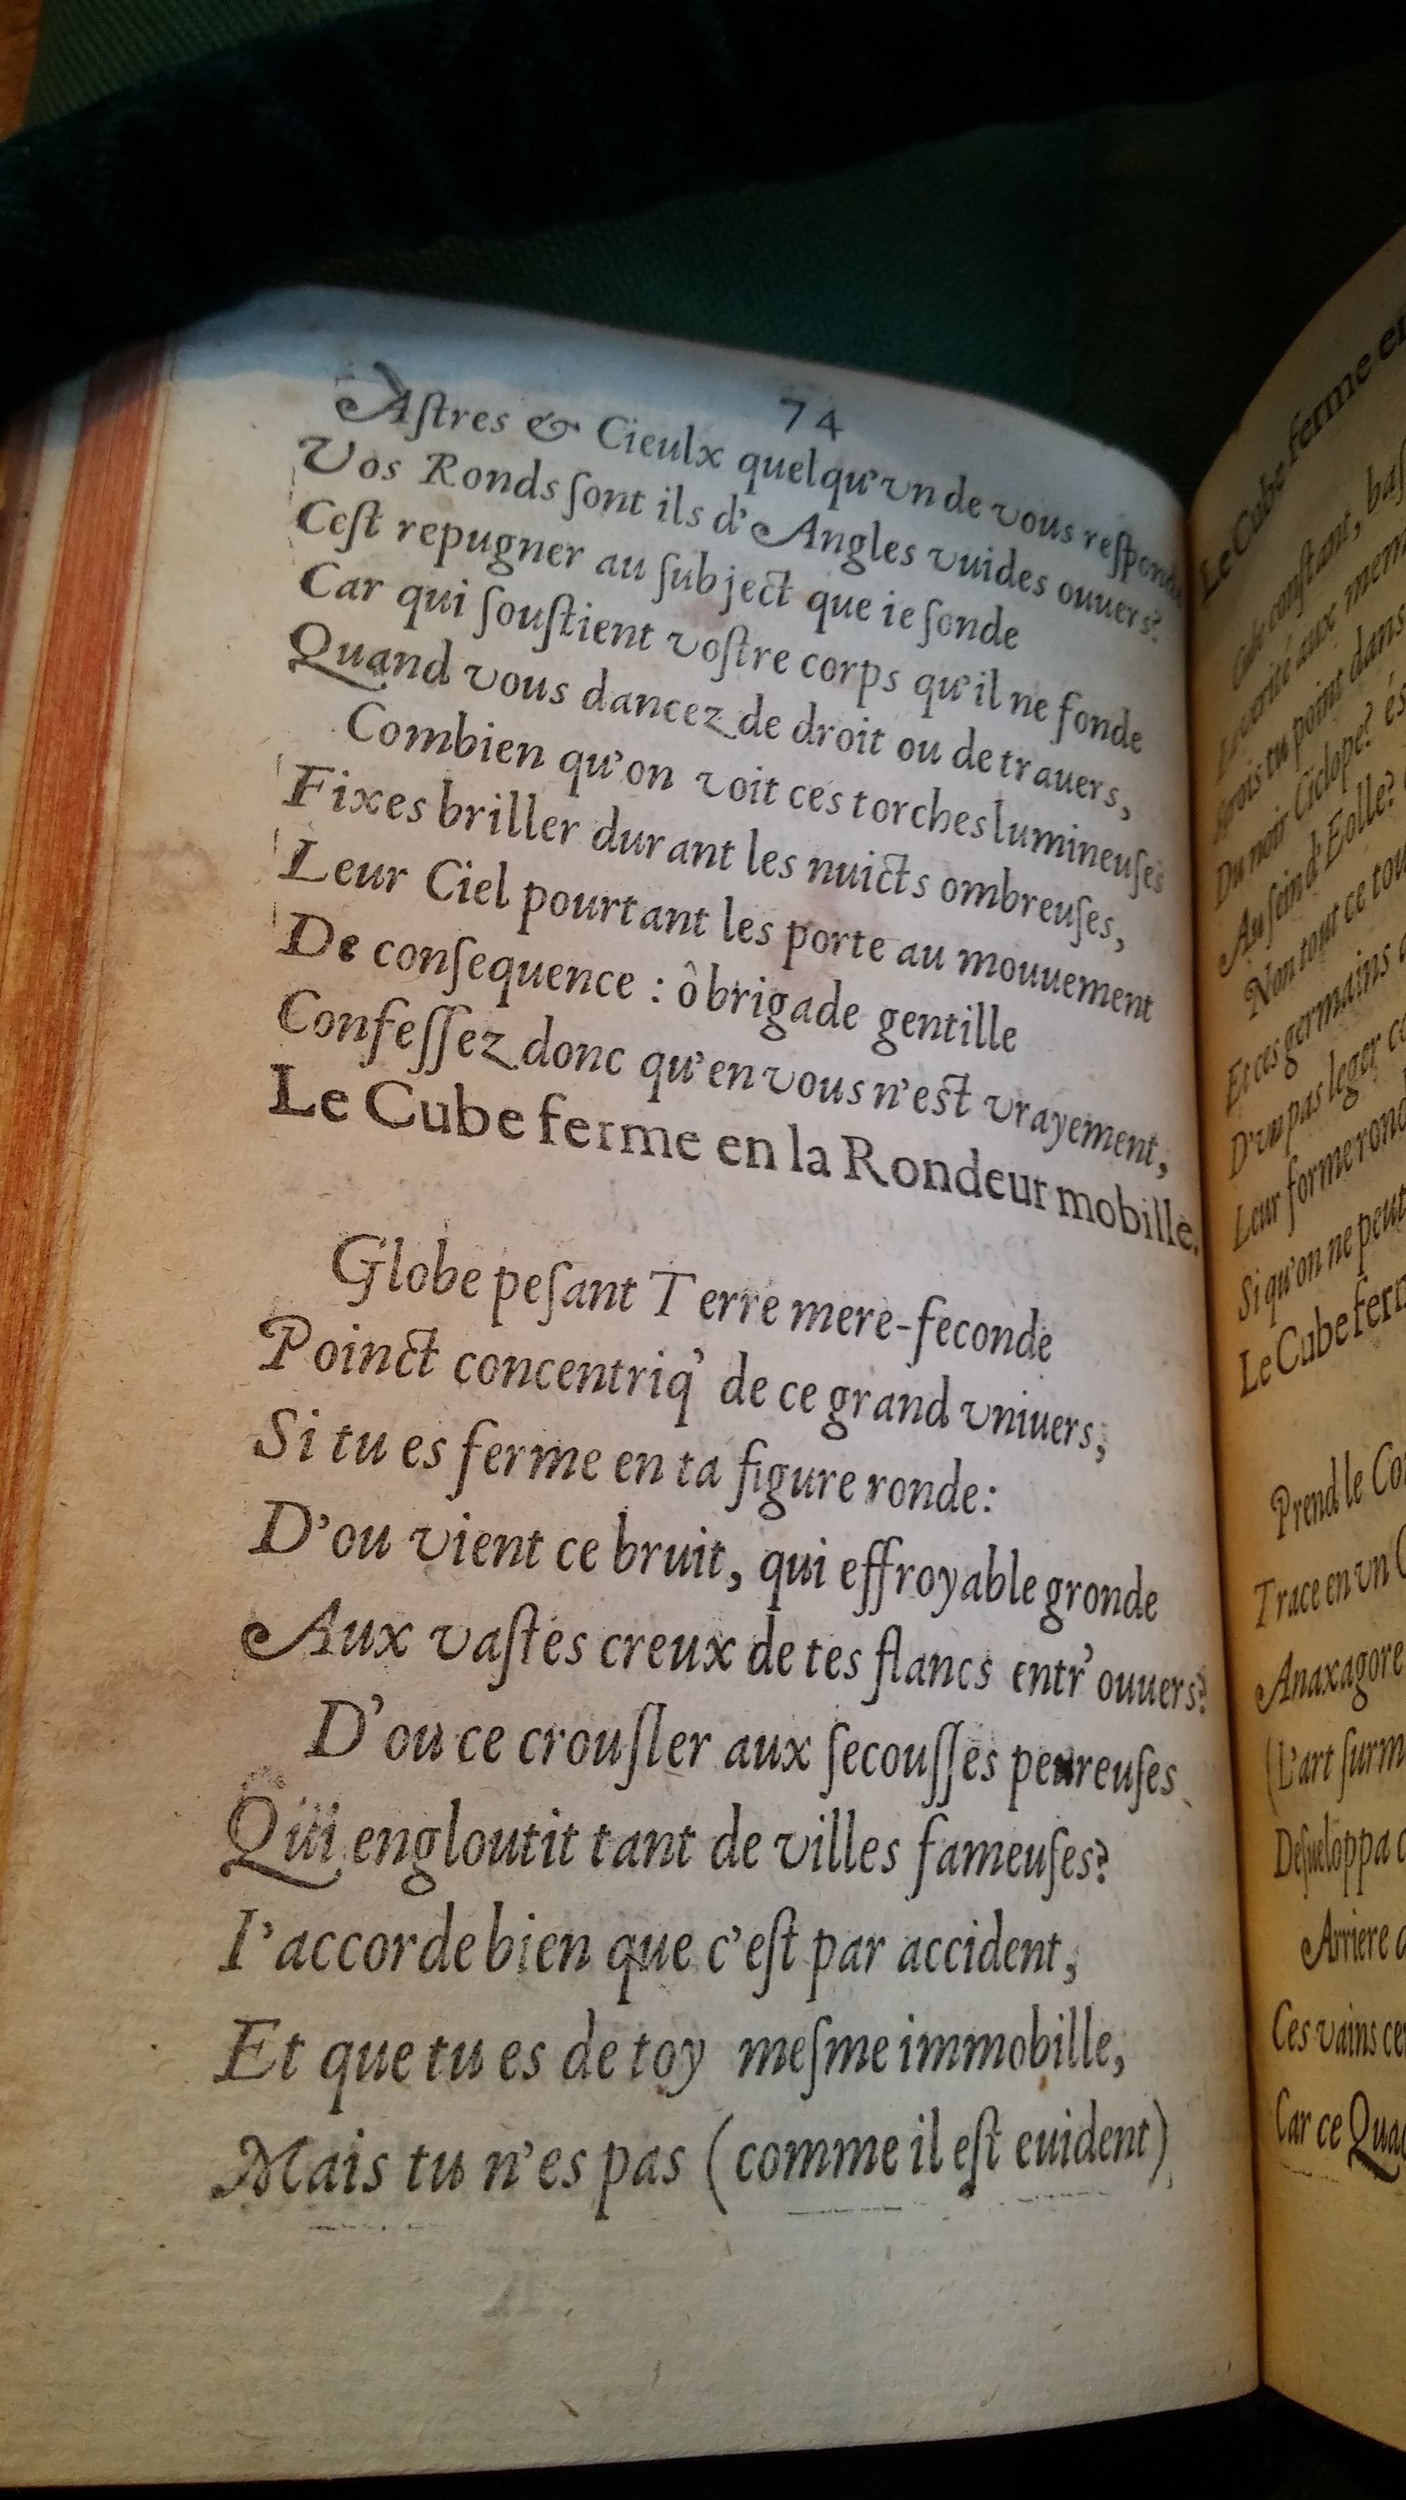 74
Aſtres & Cieulx quelqu'vn de vous reſponde
Vos Ronds ſont ils d'Angles vuides ouuers?
Ceſt repugner au ſubject que ie ſonde
Car qui ſouſtient voſtre corps qu'il ne fonde
Quand vous dancez de droit ou de trauers,
Combien qu'on voit ces torches lumineuſes
Fixes briller durant les nuicts ombreuſes,
Leur Ciel pourtant les porte au mouuement
De conſequence : ô brigade gentille
Confeſſez donc qu'en vous n'est vrayement,
Le Cube ferme en la Rondeur mobille.
Globe peſant Terre mere-feconde
Poinct concentriq' de ce grand vniuers,
Si tu es ferme en ta figure ronde:
D'ou vient ce bruit, qui effroyable gronde
Aux vaſtes creux de tes flancs entr'ouuers?
D'ou ce crouſler aux ſecouſſes peureuſes
Qui engloutit tant de villes fameuſes?
I'accorde bien que c'eſt par accident,
Et que tu es de toy meſme immobille,
Mais tu n'es pas (comme il eſt euident)
Le Cube ferme
Cube conſtant,
aux
tu point dans
Du noir Ciclope?
Au ſein d'Eolle?
Non tout ce
Et ces germains
D'vn pas leger
Leur forme
Si qu'on ne peut
Le Cube
Prend le
Trace en vn
Anaxagore
(L'art
Deſueloppa
Arriere
Ces vains
Car ce